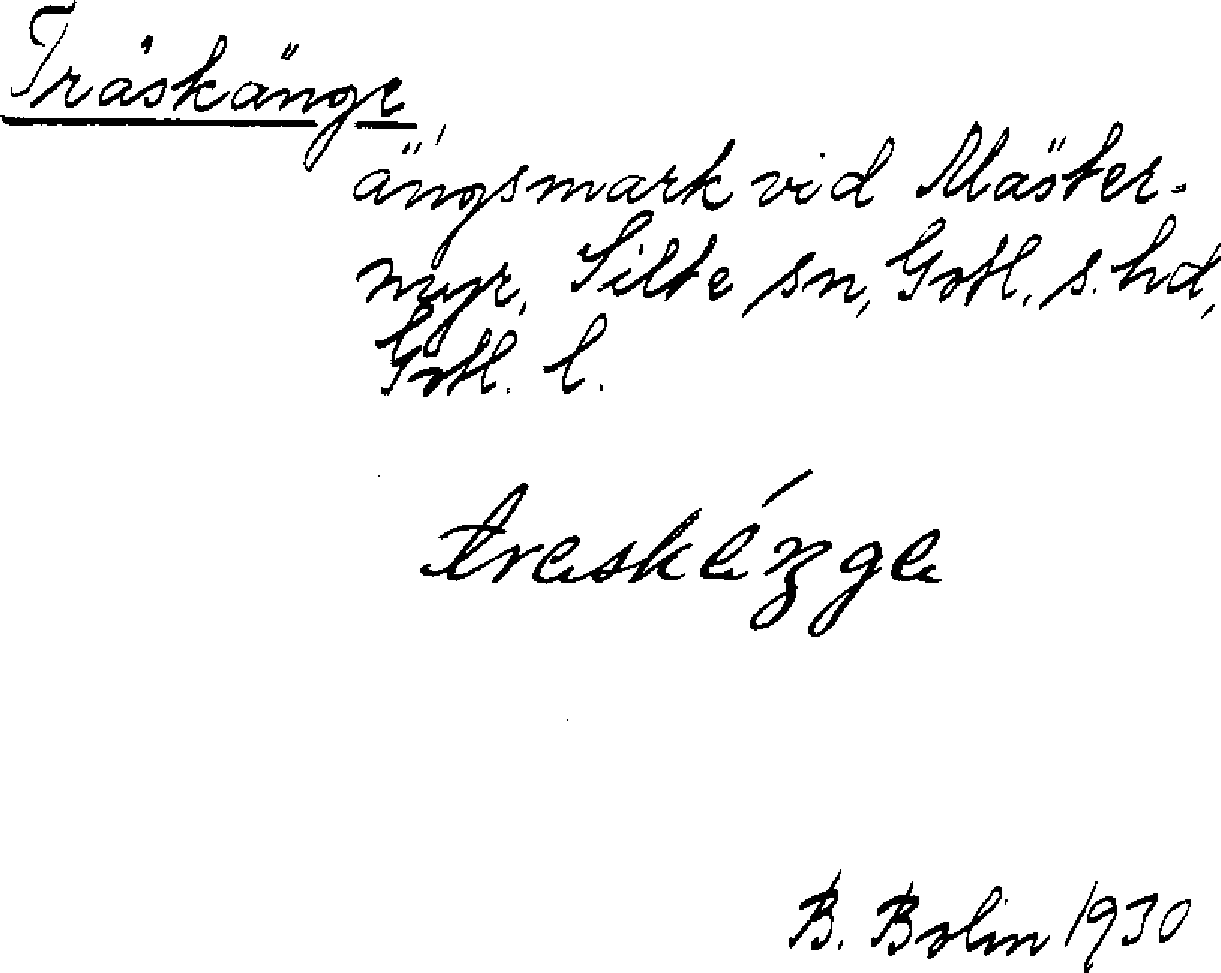 Träskänge,
ängsmark vid Mäster-
myr, Silte sn, Gotl. s. hd,
Gotl. l.
B. Bolin 1930